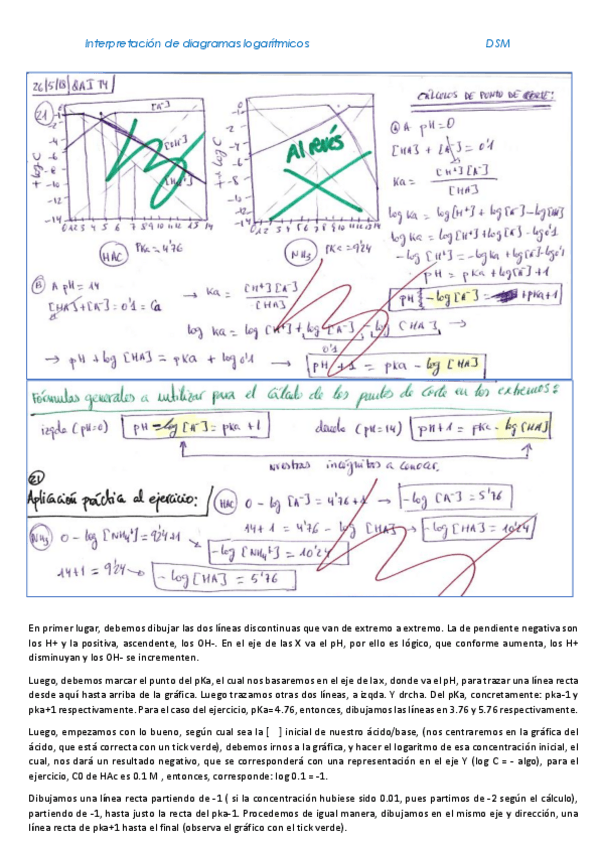 Interpretación de diagramas logarítmicos DSM
26/5/13 BAI T4
CÁLCULOS DE PUNTO DE CORTE:
21
[A-]
[OH-]
[H+]
+ log C
0 1 2 3 4 5 6 7 8 9 10 11 12 13 14
HAC
pKa = 4'76
Al revés
+ log C
0 1 2 3 4 5 6 7 8 9 10 11 12 13 14
NH3
pKa = 9'24
A A pH=0
[HA] + [A-] = 0'1
Ka = [H+][A-] / [HA]
log Ka = log[H+] + log[A-] - log[HA]
log Ka = log[H+] + log[A-] - log 0'1
- log [H+] = - log Ka + log[A-] - log 0'1
pH = pKa + log[A-] + 1
pH - log [A-] = pKa + 1
B A pH = 14
[HA] + [A-] = 0'1 = Ca
→ Ka = [H+][A-] / [HA]
log Ka = log [H+] + log [A-] - log [HA] →
0'1
→ pH + log [HA] = pKa + log 0'1 → pH + 1 = pKa - log [HA]
Fórmulas generales a utilizar para el cálculo de los puntos de corte en los extremos:
izqda (pH=0) pH - log [A-] = pKa + 1 derecha (pH=14) pH + 1 = pKa - log [HA]
nuestras incógnitas a conocer.
21
Aplicación práctica al ejercicio:
HAC 0 - log [A-] = 4'76 + 1 → - log [A-] = 5'76
14 + 1 = 4'76 - log [HA] → - log [HA] = 10'24
NH3 0 - log [NH4+] = 9'24 + 1 → - log [NH4+] = 10'24
14 + 1 = 9'24 → - log [HA] = 5'76
En primer lugar, debemos dibujar las dos líneas discontinuas que van de extremo a extremo. La de pendiente negativa son
los H+ y la positiva, ascendente, los OH-. En el eje de las X va el pH, por ello es lógico, que conforme aumenta, los H+
disminuyan y los OH- se incrementen.
Luego, debemos marcar el punto del pKa, el cual nos basaremos en el eje de la x, donde va el pH, para trazar una línea recta
desde aquí hasta arriba de la gráfica. Luego trazamos otras dos líneas, a izqda. Y drcha. Del pKa, concretamente: pka-1 y
pka+1 respectivamente. Para el caso del ejercicio, pKa= 4.76, entonces, dibujamos las líneas en 3.76 y 5.76 respectivamente.
Luego, empezamos con lo bueno, según cual sea la [ ] inicial de nuestro ácido/base, (nos centraremos en la gráfica del
ácido, que está correcta con un tick verde), debemos irnos a la gráfica, y hacer el logaritmo de esa concentración inicial, el
cual, nos dará un resultado negativo, que se corresponderá con una representación en el eje Y (log C = - algo), para el
ejercicio, C0 de HAc es 0.1 M , entonces, corresponde: log 0.1 = -1.
Dibujamos una línea recta partiendo de -1 ( si la concentración hubiese sido 0.01, pues partimos de -2 según el cálculo),
partiendo de -1, hasta justo la recta del pka-1. Procedemos de igual manera, dibujamos en el mismo eje y dirección, una
línea recta de pka+1 hasta el final (observa el gráfico con el tick verde).